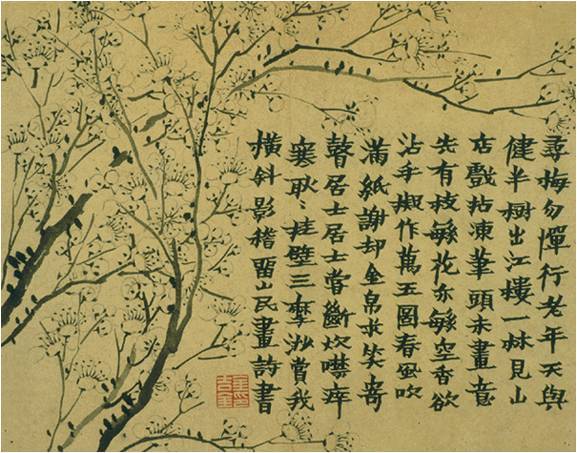 尋梅勿憚行老年天與
健半樹出江樓一林見山
店戲拈凍筆頭未畫意
先有枝繁花亦繁空香欲
沾手作萬玉圖春風吹
滿紙謝却金帛求笑寄
瞽居士居士嘗斷炊噤瘁
耿〻挂壁三摩挲賞我
橫斜影稽留山民畫詩書